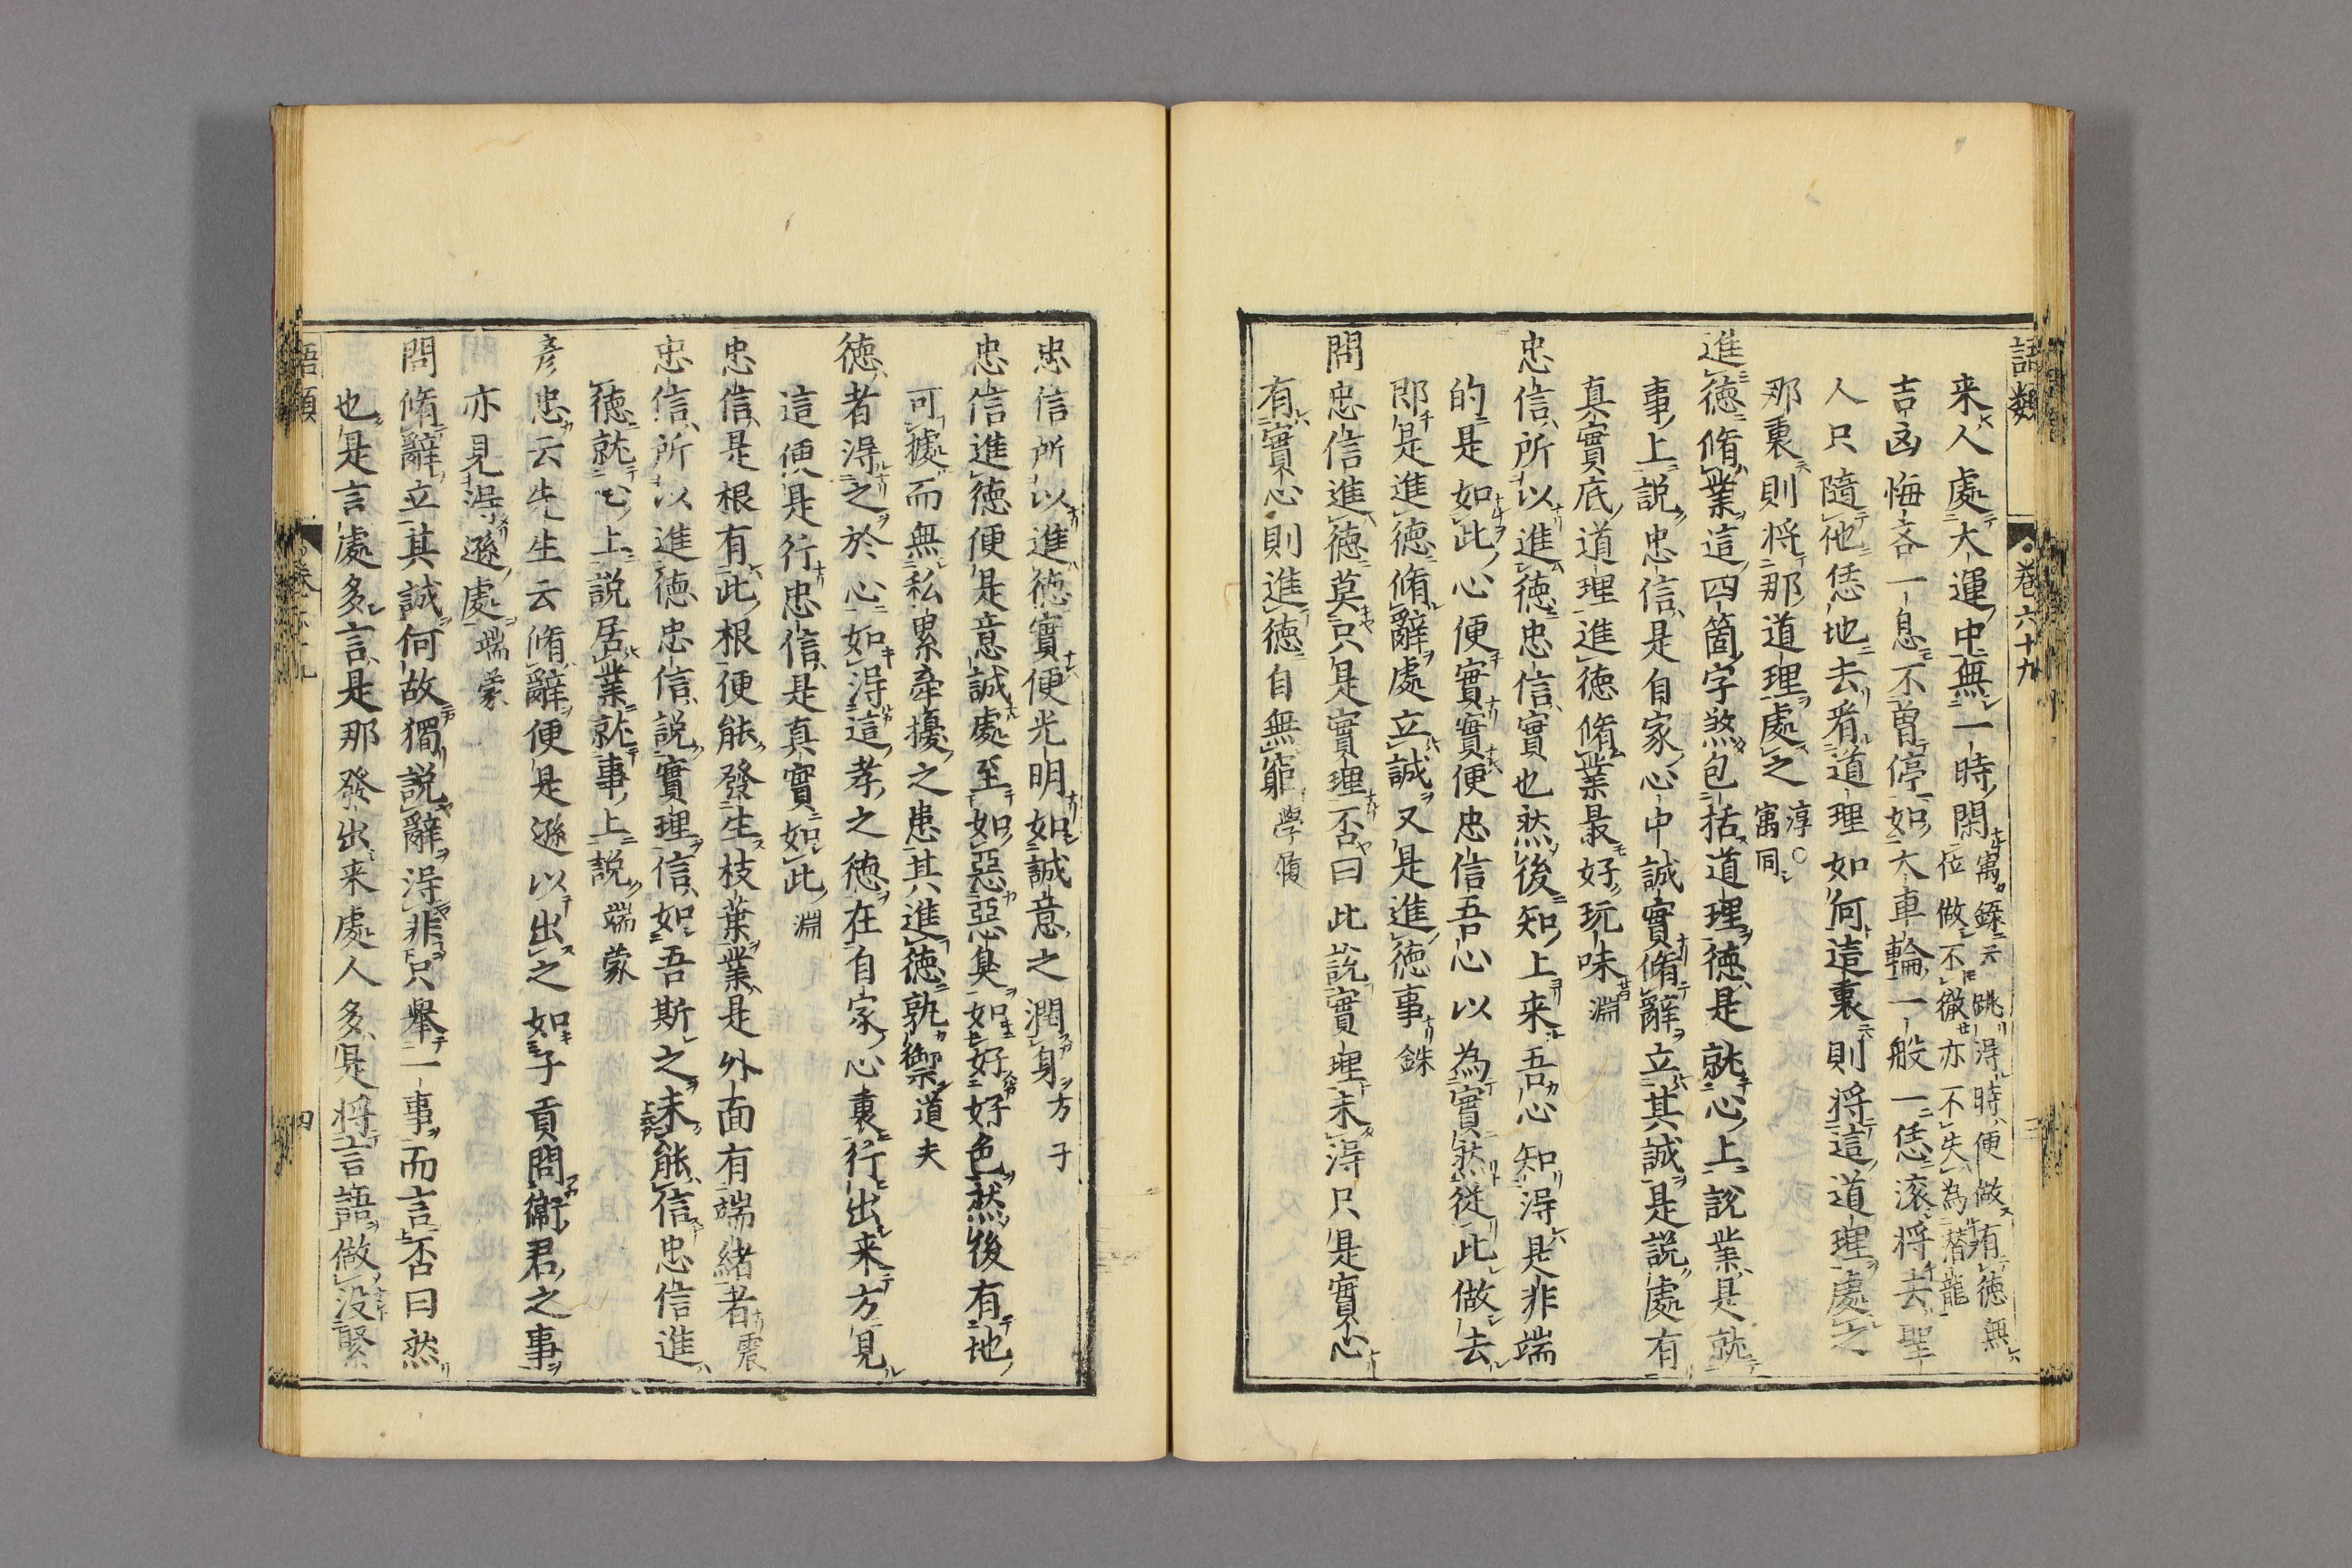 語類
卷六十九
来人處大運中無一時閑寓錄云跳得時便做有德無
位做不徹亦不失為潜龍
吉凶悔吝一息不曾停如大車輪一般一恁滚将去聖
人只隨他恁地去看道理如何這裏則将這道理處之
那裏則将那道理處之淳○
寓同
進德脩業這四箇字煞包括道理德是就心上説業是就
事上説忠信是自家心中誠實脩辭立其誠是説處有
真實底道理進德脩業最好玩味淵
忠信所以進德忠信實也然後知上来吾心知得是非端
的是如此心便實實便忠信吾心以為實然従此做去
即是進德脩辭處立誠又是進德事銖
問忠信進德莫只是實理否曰此説實理未得只是實心
有實心則進德自無窮學履
忠信所以進德實便光明如誠意之潤身方子
忠信進德便是意誠處至如惡惡臭如好好色然後有地
可據而無私累牽擾之患其進德孰禦道夫
德者得之於心如得這孝之德在自家心裏行出来方見
這便是行忠信是真實如此淵
忠信是根有此根便能發生枝葉業是外面有端緒者震
忠信所以進德忠信説實理信如吾斯之未能信忠信進
德就心上説居業就事上説端蒙
彦忠云先生云脩辭便是遜以出之如子貢問衛君之事
亦見得遜處端蒙
問脩辭立其誠何故獨説辭得非只舉一事而言否曰然
也是言處多言是那發出来處人多是将言語做没緊
語類
卷六十九
四